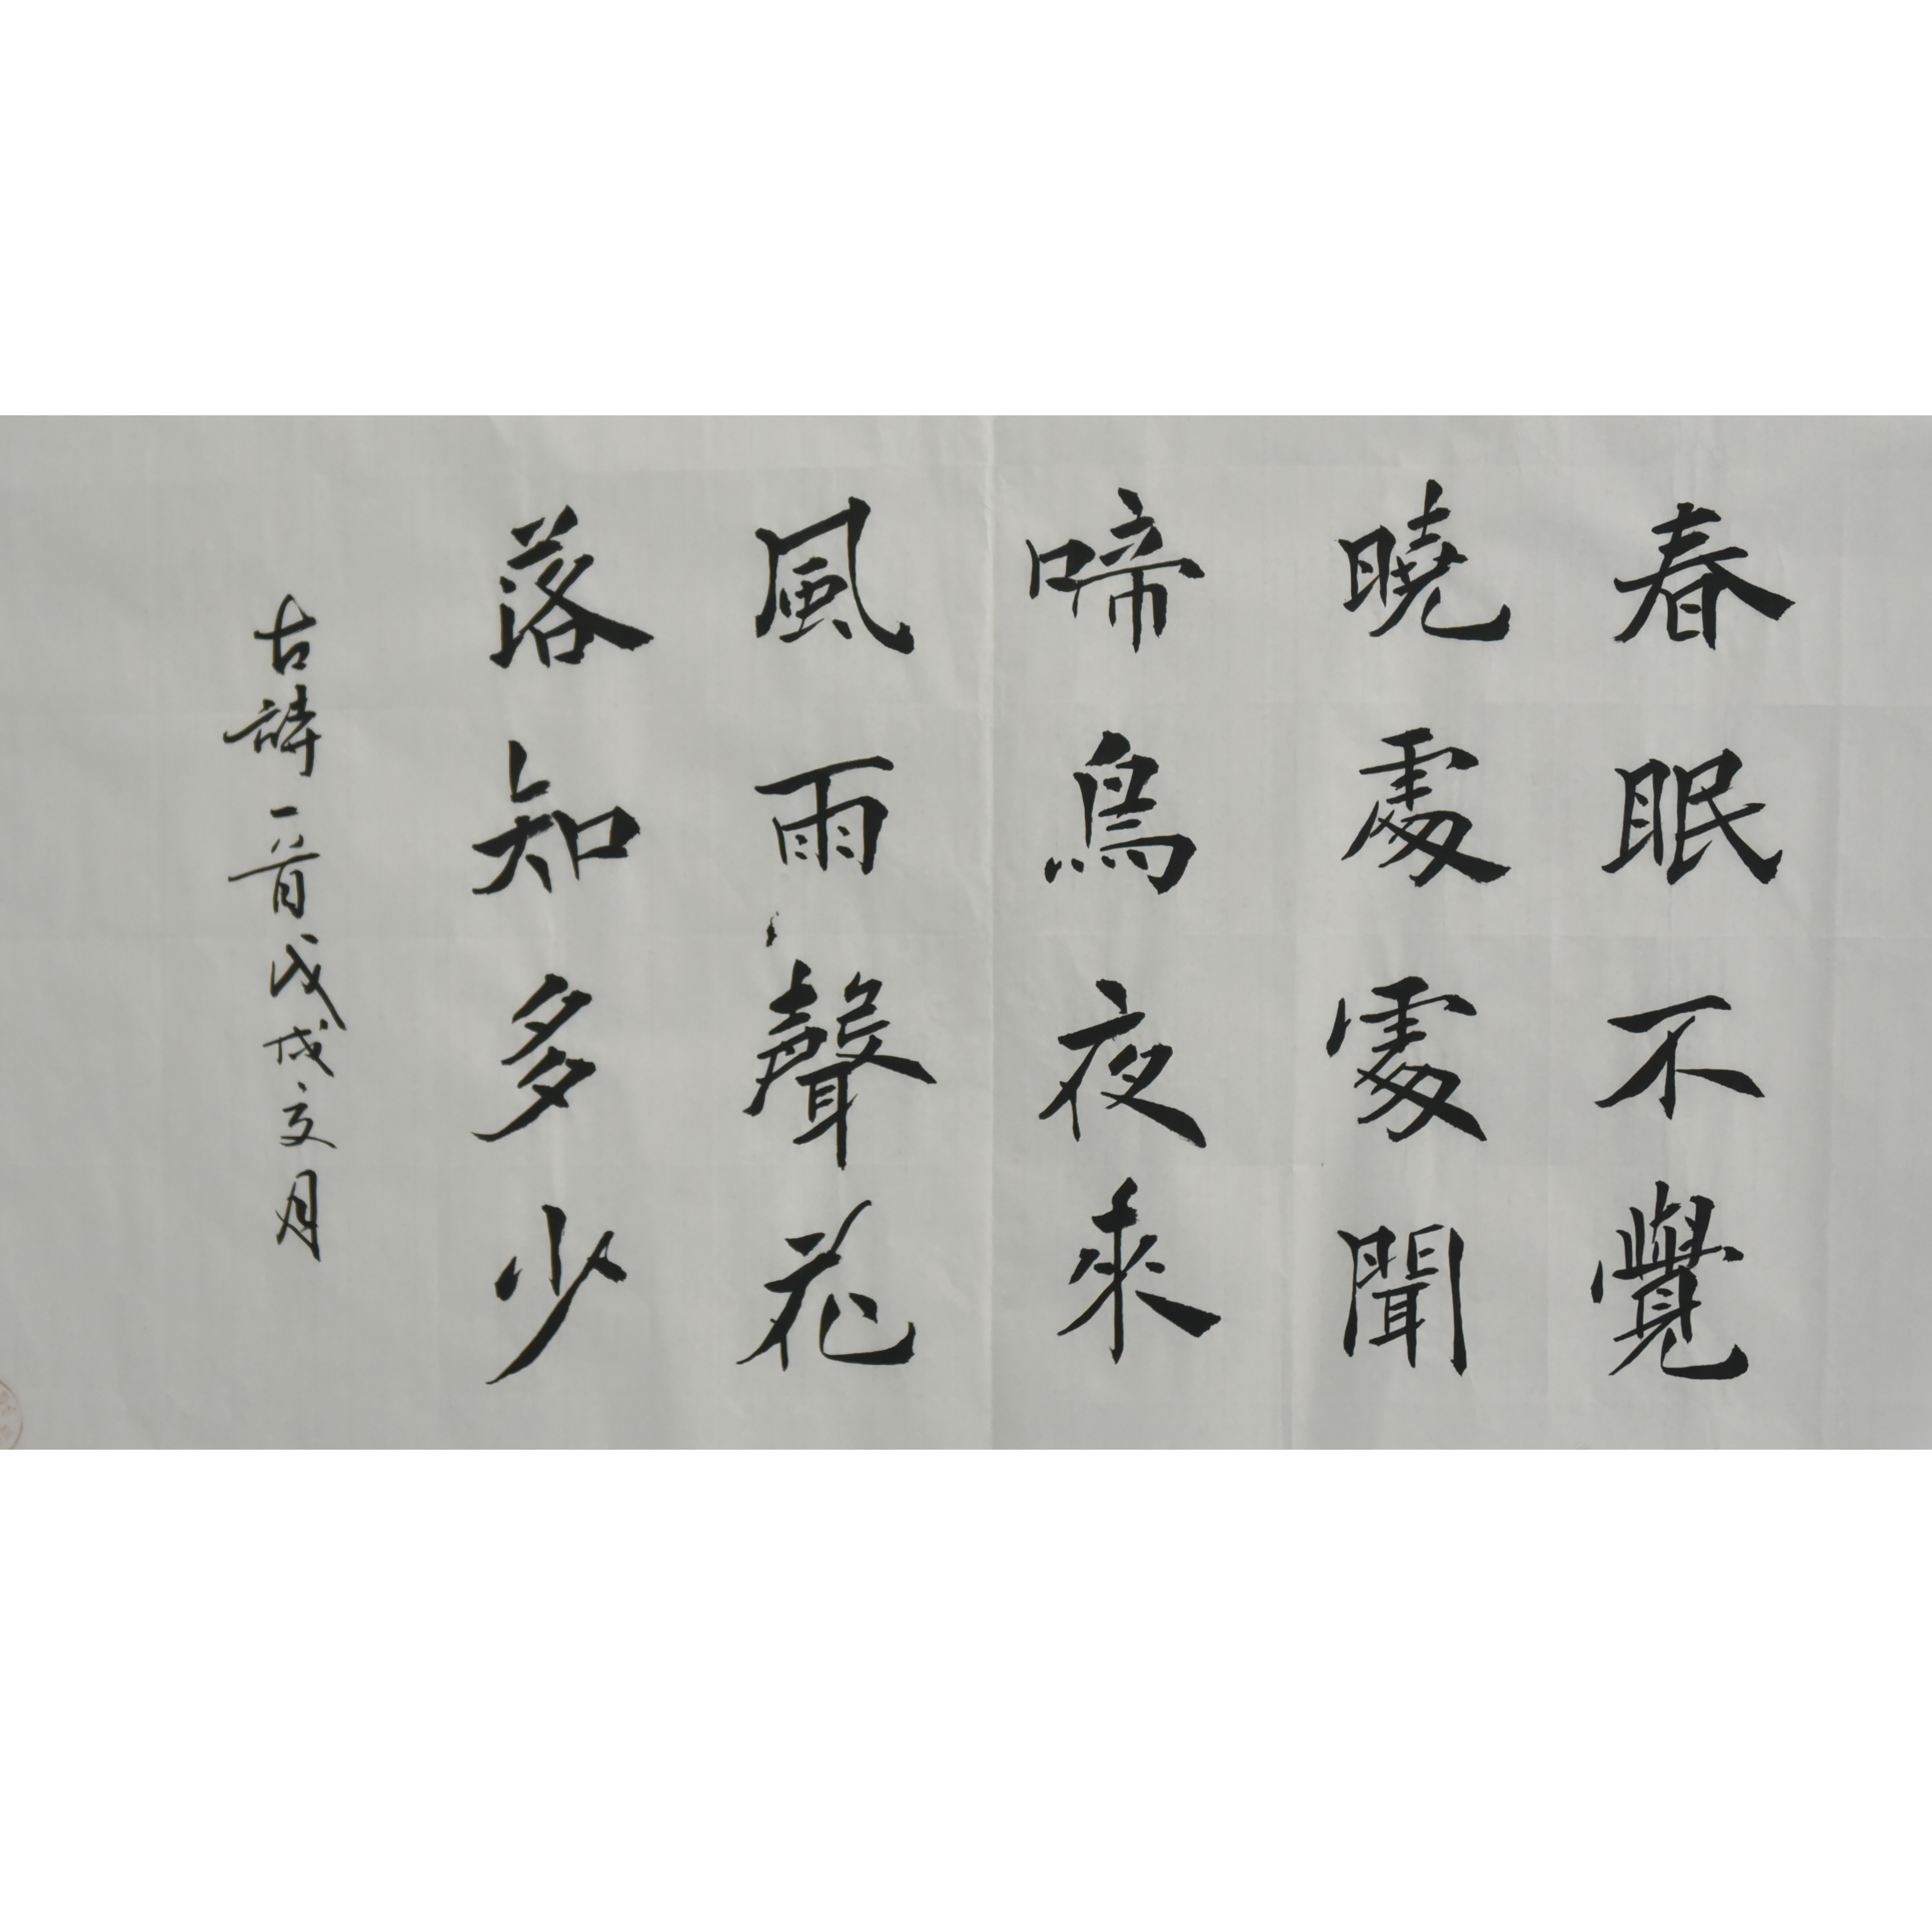 春眠不覺
曉處處聞
啼鳥夜來
風雨聲花
落知多少
古詩一首戊戌文月